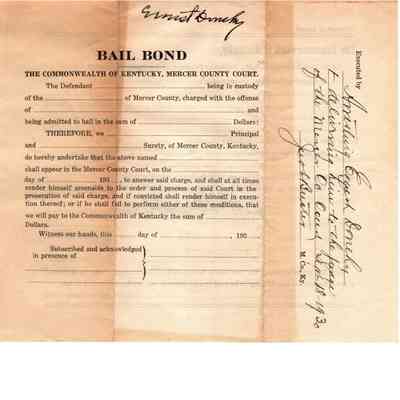 Ernest
BAIL BOND
THE COMMONWEALTH OF KENTUCKY, MERCER COUNTY COURT.
The Defendant being in custody
of the of Mercer County, charged with the offense
of and
being admitted to bail in the sum of Dollars:
THEREFORE, we Principal
and Surety, of Mercer County, Kentucky,
do hereby undertake that the above named
shall appear in the Mercer County Court, on the
day of 193 , to answer said charge, and shall at all times
render himself amenable to the order and process of said Court in the
prosecution of said charge, and if convicted shall render himself in execu-
tion thereof; or if he shall fail to perform either of these conditions, that
we will pay to the Commonwealth of Kentucky the sum of
Dollars.
Witness our hands, this day of , 193
Subscribed and acknowledged
in presence of
Executed by
Arresting
& delivering him to the
of the Mercer Co Court
M. Co., Ky.